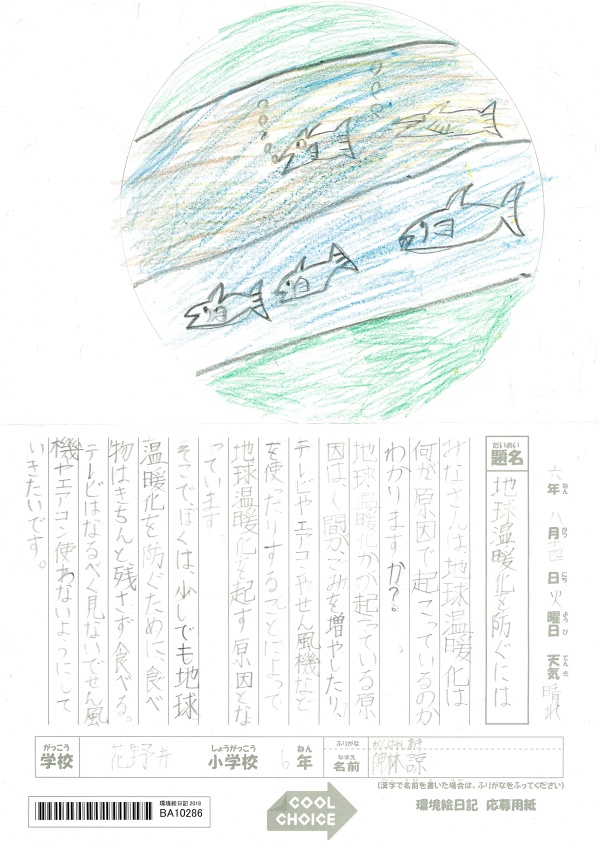 六年 八月 十四日 火曜日 天気 晴れ
ねん がつ にち ようび てんき
だいめい
題名
地球温暖化を防ぐには
みなさんは、地球温暖化は
何が原因で起こっているのか
わかりますか?。
地球温暖化が起っている原
因は、人間が、ごみを増やしたり、
テレビやエアコンやせん風機など
を使ったりすることによって
地球温暖化を起す原因とな
っています。
そこでぼくは、少しでも地球
温暖化を防ぐために、食べ
物はきちんと残さず食べる。
テレビはなるべく見ないでせん風
機やエアコン使わないようにして
いきたいです。
がっこう
学校
花野井
しょうがっこう
小学校
6
ねん
年
ふりがな
なまえ
名前
諒
(漢字で名前を書いた場合は、ふりがなをふってください)
環境絵日記 2018
BA10286
COOL
CHOICE
環境絵日記 応募用紙